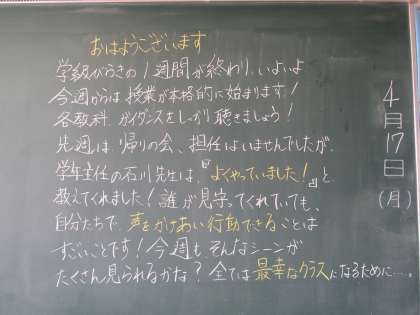 おはようございます
学級びらきの1週間が終わり、いよいよ
今週からは授業が本格的に始まります!
各教科、ガイダンスをしっかり聴きましょう!
先週は、帰りの会、担任はいませんでしたが、
学年主任の石川先生は、『よくやっていました!』と
教えてくれました!誰が見守ってくれていても、
自分たちで、声をかけあい行動できることは
すごいことです!今週も、そんなシーンが
たくさん見られるかな?全ては最幸なクラスになるために…。
4月17日(月)